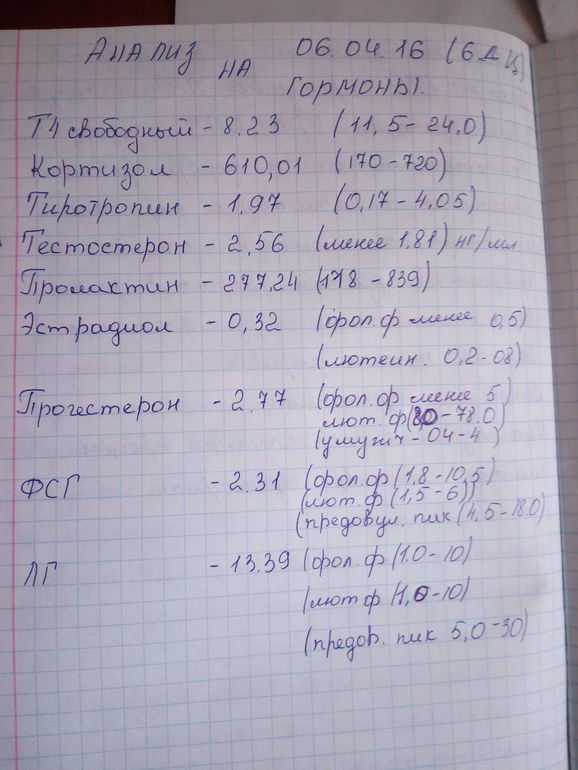 Анализ на 06.04.16 (6 д ц)
гормоны.
Т4 свободный - 8.23 (11,5 - 24.0)
Кортизол - 610,01 (170 - 720)
Тиротропин - 1.97 (0,17 - 4,05)
Тестостерон - 2,56 (менее 1.81) нг/мл
Пролактин - 277,24 (118 - 839)
Эстрадиол - 0,32 (фол.ф менее 0,5)
(лютеин. 0,2 - 08)
Прогестерон - 2.77 (фол.ф менее 5)
лют.ф - 78.0)
(у мужч - 04 - 4)
ФСГ - 2.31 (фол.ф (1,8 - 10,5)
(лют.ф (1,5 - 6))
(предовул. пик (4,5 - 18.0)
ЛГ - 13.39 (фол.ф (1.0 - 10)
(лют ф (1,0 - 10)
(предов. пик 5,0 - 30)